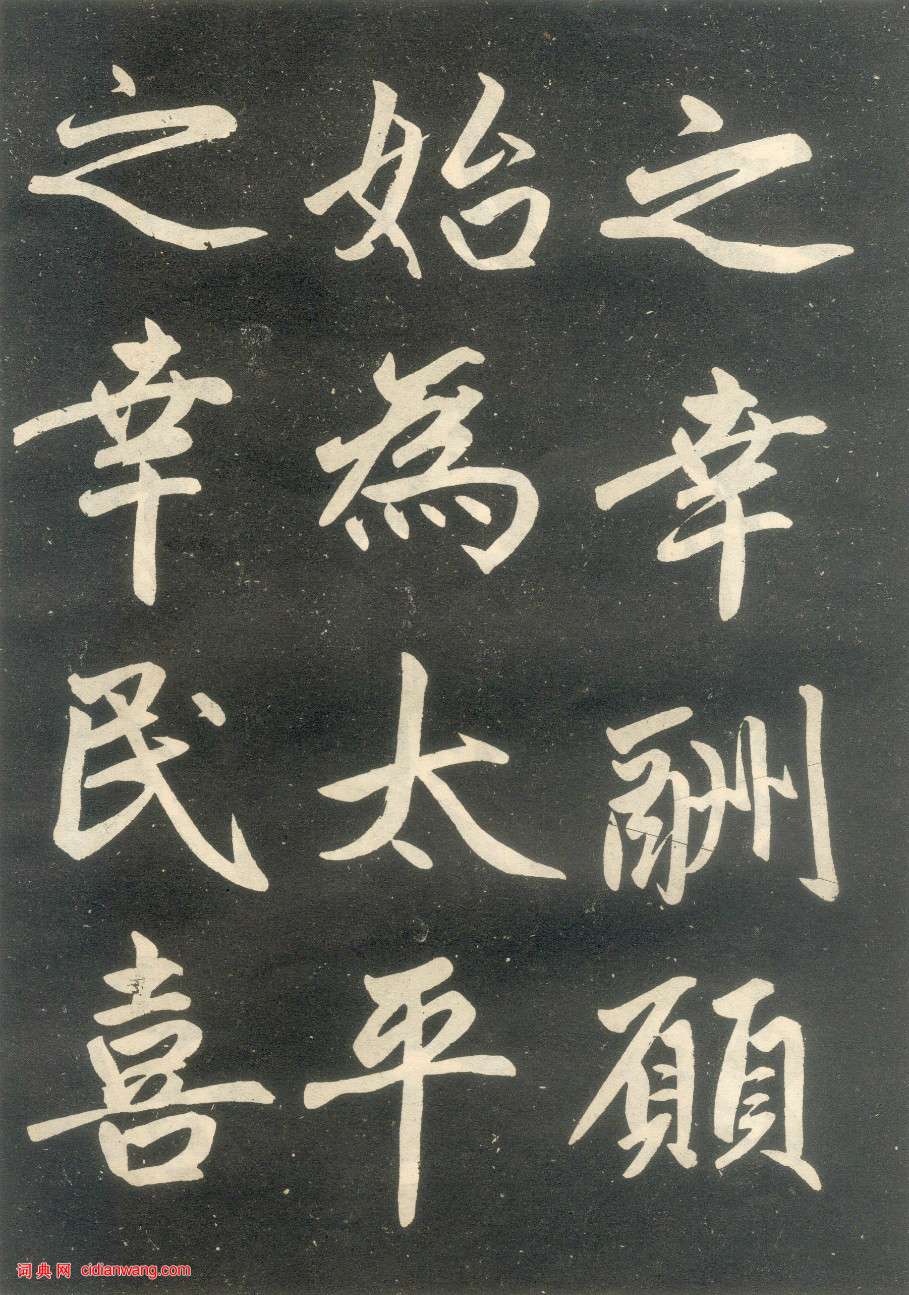 之幸酬願
始為太平
之幸民喜
词典网 cidianwang.com